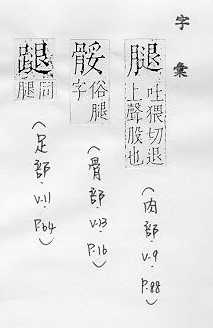 字彙
腿 吐猥切退上聲股也
(肉部.V.9 P.88)
骽 俗腿字
(骨部.V.13 P.16)
蹆 同腿
(足部.V.11 P.64)